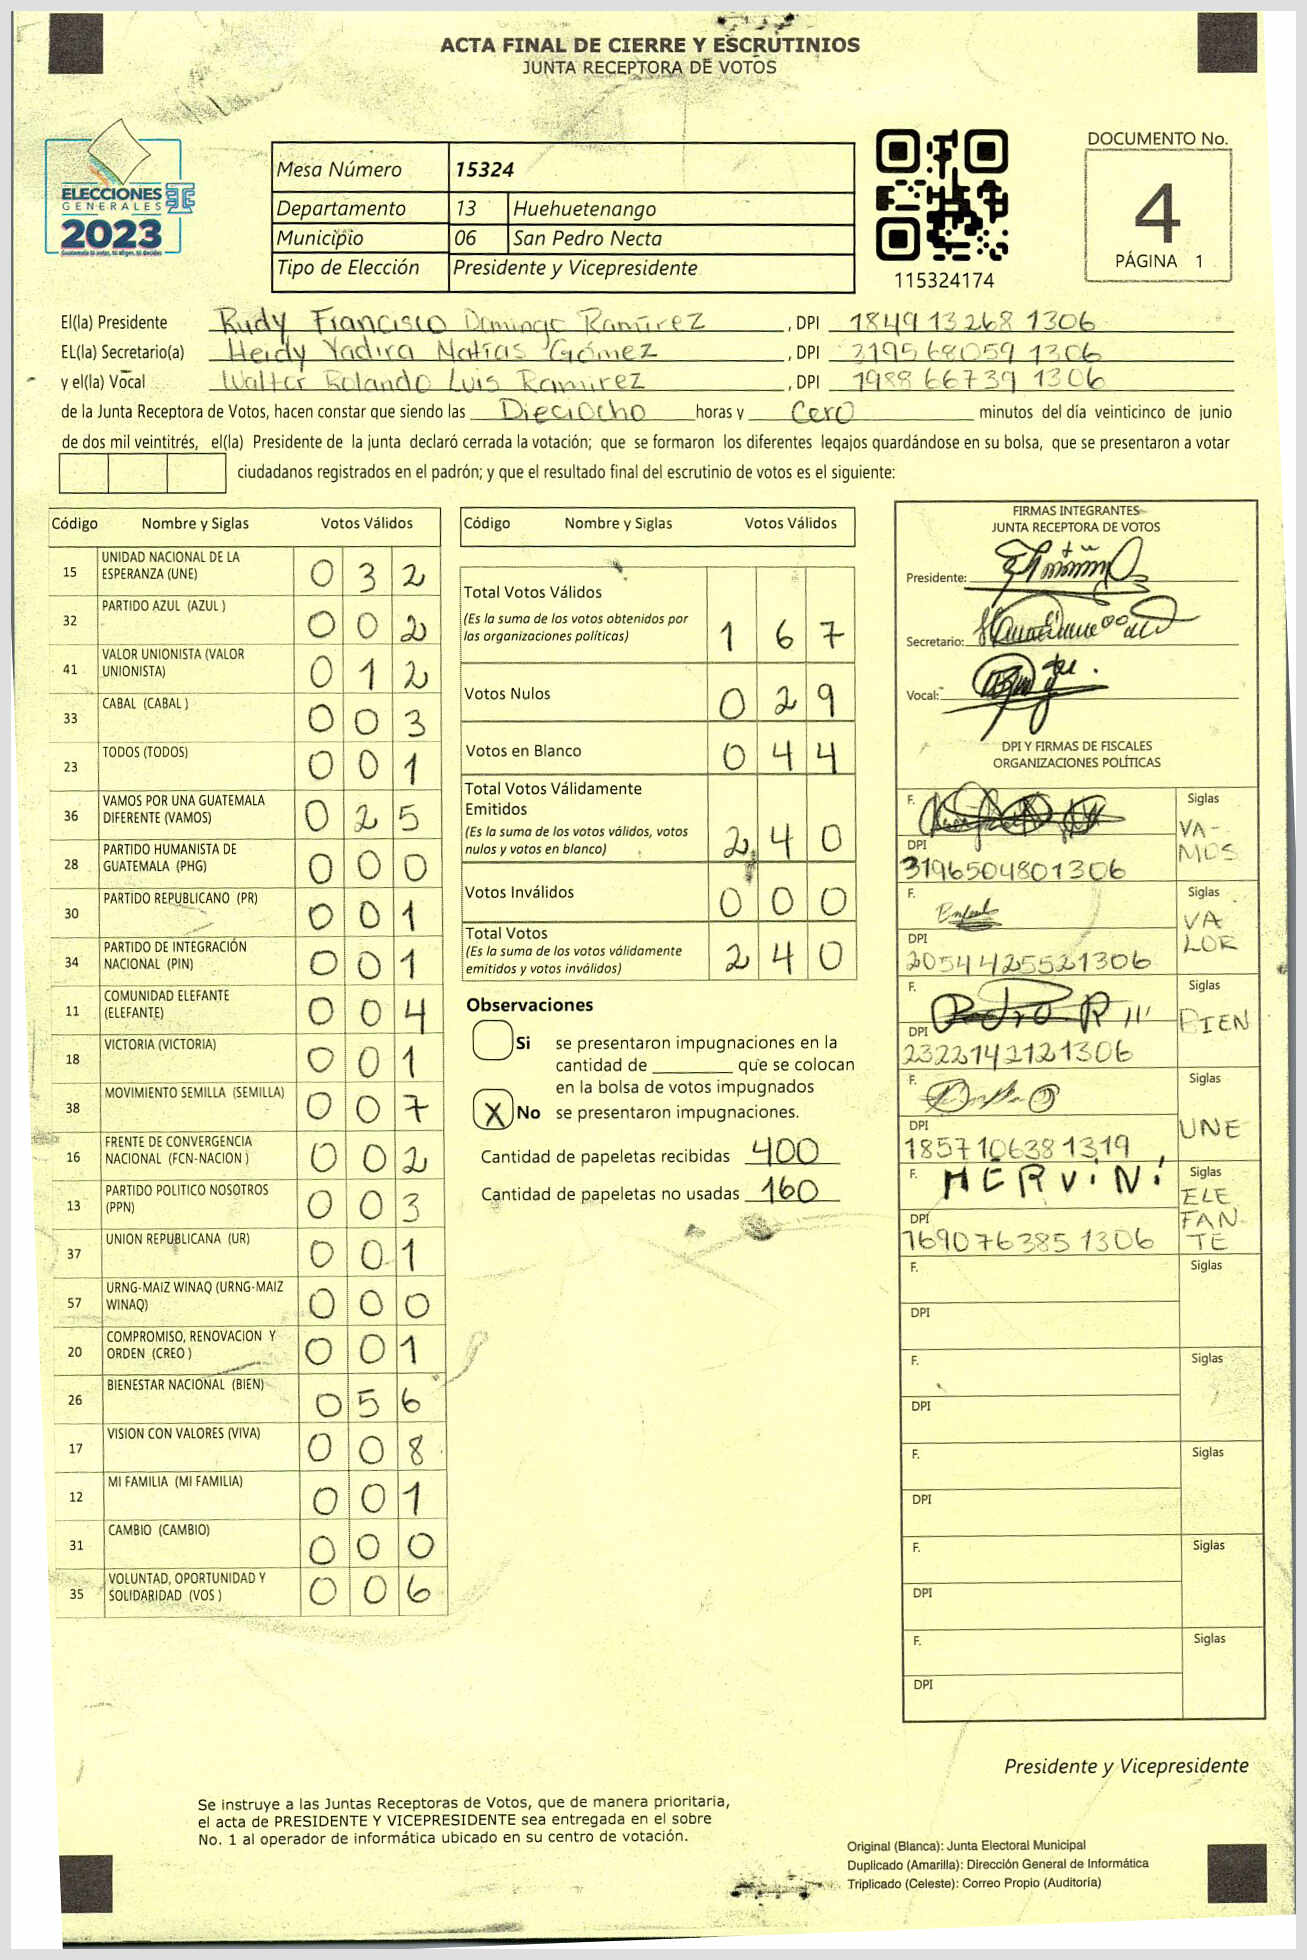 ACTA FINAL DE CIERRE Y ESCRUTINIOS
JUNTA RECEPTORA DE VOTOS
ELECCIONES
GENERALES
2023
Mesa Número 15324
Departamento 13 Huehuetenango
Municipio 06 San Pedro Necta
Tipo de Elección Presidente y Vicepresidente
115324174
DOCUMENTO No.
4
PÁGINA 1
El(la) Presidente Rudy Francisco Domingo Ramírez , DPI 1849 13268 1306
EL(la) Secretario(a) Heidy Yadira Matías Gómez , DPI 319568059 1306
y el(la) Vocal Walter Rolando Luis Ramirez , DPI 1988 66739 1306
de la Junta Receptora de Votos, hacen constar que siendo las Dieciocho horas y Cero minutos del día veinticinco de junio
de dos mil veintitrés, el(la) Presidente de la junta declaró cerrada la votación; que se formaron los diferentes legajos guardándose en su bolsa, que se presentaron a votar
ciudadanos registrados en el padrón; y que el resultado final del escrutinio de votos es el siguiente:
Código Nombre y Siglas Votos Válidos
15 UNIDAD NACIONAL DE LA ESPERANZA (UNE) 0 3 2
32 PARTIDO AZUL (AZUL ) 0 0 2
41 VALOR UNIONISTA (VALOR UNIONISTA) 0 1 2
33 CABAL (CABAL ) 0 0 3
23 TODOS (TODOS) 0 0 1
36 VAMOS POR UNA GUATEMALA DIFERENTE (VAMOS) 0 2 5
28 PARTIDO HUMANISTA DE GUATEMALA (PHG) 0 0 0
30 PARTIDO REPUBLICANO (PR) 0 0 1
34 PARTIDO DE INTEGRACIÓN NACIONAL (PIN) 0 0 1
11 COMUNIDAD ELEFANTE (ELEFANTE) 0 0 4
18 VICTORIA (VICTORIA) 0 0 1
38 MOVIMIENTO SEMILLA (SEMILLA) 0 0 7
16 FRENTE DE CONVERGENCIA NACIONAL (FCN-NACION ) 0 0 2
13 PARTIDO POLITICO NOSOTROS (PPN) 0 0 3
37 UNION REPUBLICANA (UR) 0 0 1
57 URNG-MAIZ WINAQ (URNG-MAIZ WINAQ) 0 0 0
20 COMPROMISO, RENOVACION Y ORDEN (CREO ) 0 0 1
26 BIENESTAR NACIONAL (BIEN) 0 5 6
17 VISION CON VALORES (VIVA) 0 0 8
12 MI FAMILIA (MI FAMILIA) 0 0 1
31 CAMBIO (CAMBIO) 0 0 0
35 VOLUNTAD, OPORTUNIDAD Y SOLIDARIDAD (VOS ) 0 0 6
Código Nombre y Siglas Votos Válidos
Total Votos Válidos
(Es la suma de los votos obtenidos por
las organizaciones políticas) 1 6 7
Votos Nulos 0 2 9
Votos en Blanco 0 4 4
Total Votos Válidamente
Emitidos
(Es la suma de los votos válidos, votos
nulos y votos en blanco) 2 4 0
Votos Inválidos 0 0 0
Total Votos
(Es la suma de los votos válidamente
emitidos y votos inválidos) 2 4 0
Observaciones
Si se presentaron impugnaciones en la
cantidad de ________ que se colocan
en la bolsa de votos impugnados
X No se presentaron impugnaciones.
Cantidad de papeletas recibidas 400
Cantidad de papeletas no usadas 160
FIRMAS INTEGRANTES
JUNTA RECEPTORA DE VOTOS
Presidente:
Secretario:
Vocal:
DPI Y FIRMAS DE FISCALES
ORGANIZACIONES POLÍTICAS
F. Siglas VA-
MOS
DPI 3196504801306
F. Siglas VA
LOR
DPI 2054425521306
F. Pedro R Siglas BIEN
DPI 2322142121306
F. Siglas UNE
DPI 1857106381319
F. MERVIN Siglas ELE
FAN-
TE
DPI 1690763851306
F. Siglas
DPI
F. Siglas
DPI
F. Siglas
DPI
F. Siglas
DPI
F. Siglas
DPI
Presidente y Vicepresidente
Se instruye a las Juntas Receptoras de Votos, que de manera prioritaria,
el acta de PRESIDENTE Y VICEPRESIDENTE sea entregada en el sobre
No. 1 al operador de informática ubicado en su centro de votación.
Original (Blanca): Junta Electoral Municipal
Duplicado (Amarilla): Dirección General de Informática
Triplicado (Celeste): Correo Propio (Auditoría)